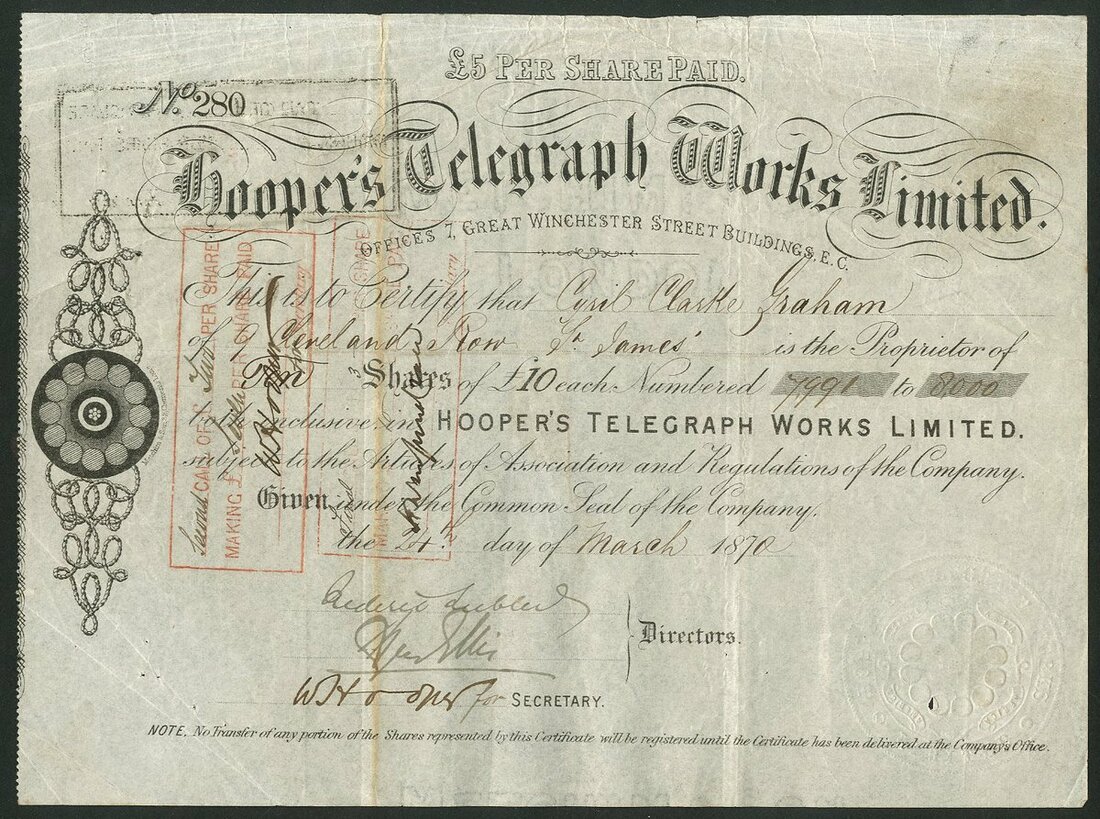 £5 PER SHARE PAID.
No. 280
Hooper's Telegraph Works Limited.
OFFICES 7, GREAT WINCHESTER STREET BUILDINGS, E.C.
This is to Certify that Cyril Clarke Graham
of 9 Cleveland Row St. James' is the Proprietor of
Ten Shares of £10 each Numbered 7991 to 8000
both inclusive, in HOOPER'S TELEGRAPH WORKS LIMITED.
subject to the Articles of Association and Regulations of the Company.
Given under the Common Seal of the Company,
the 24th day of March 1870
Directors.
W Hooper for SECRETARY.
NOTE. No Transfer of any portion of the Shares represented by this Certificate will be registered until the Certificate has been delivered at the Company's Office.
Second CALL OF £ Two PER SHARE
MAKING £ PER SHARE PAID